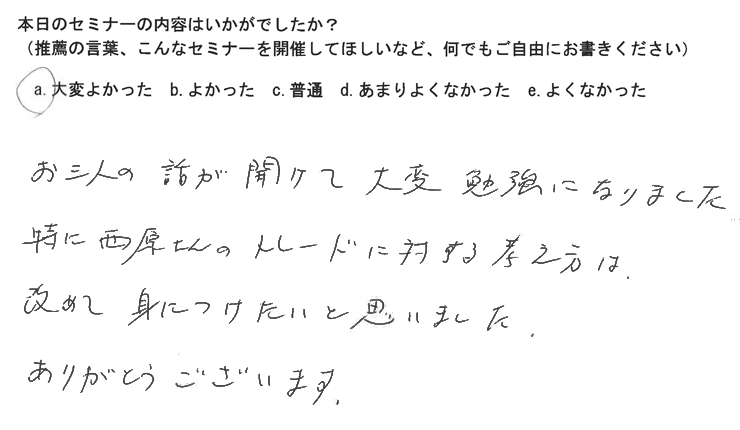 本日のセミナーの内容はいかがでしたか？
（推薦の言葉、こんなセミナーを開催してほしいなど、何でもご自由にお書きください）
a. 大変よかった　b. よかった　c. 普通　d. あまりよくなかった　e. よくなかった
お三人の話が聞けて大変勉強になりました
特に西原さんのトレードに対する考え方は、
改めて身につけたいと思いました。
ありがとうございます。